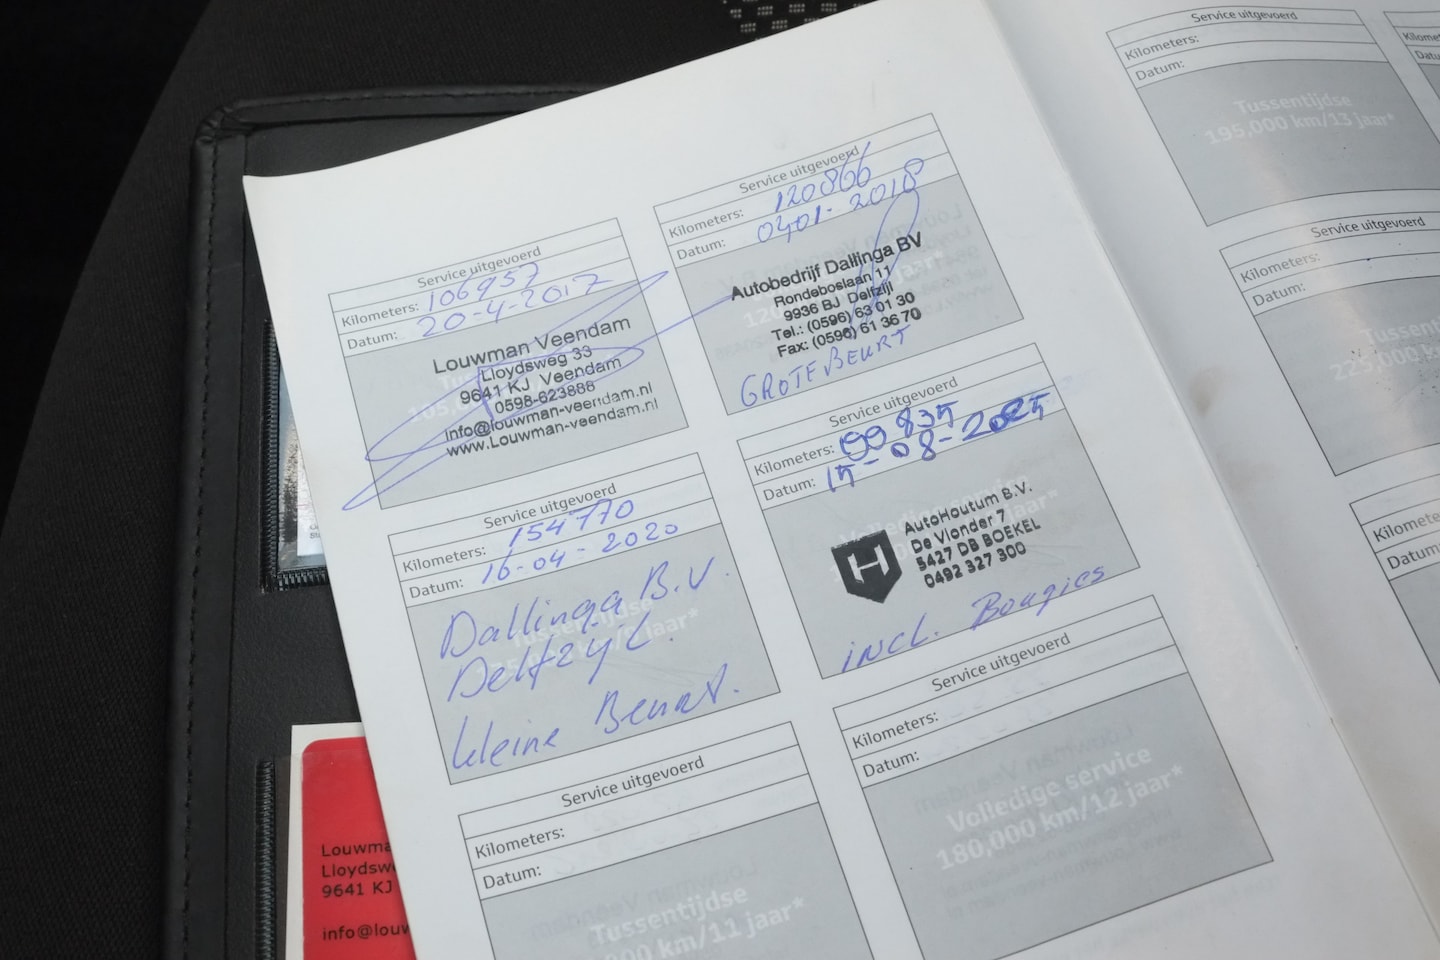 Service uitgevoerd
Kilometers: 106957
Datum: 20-4-2017
Louwman Veendam
Lloydsweg 33
9641 KJ Veendam
0598-623888
info@louwman-veendam.nl
www.Louwman-veendam.nl
Service uitgevoerd
Kilometers: 120866
Datum: 0401-2018
Autobedrijf Dallinga BV
Rondeboslaan 11
9936 BJ Delfzijl
Tel.: (0596) 63 01 30
Fax: (0596) 61 36 70
GROTE BEURT
Service uitgevoerd
Kilometers: 154770
Datum: 16-04-2020
Tussentijdse
Dallinga B.V.
Delfzijl.
kleine Beurt.
Service uitgevoerd
Kilometers: 835
Datum: 15-08-2025
Volledige service
AutoHoutum B.V.
De Vlonder 7
5427 DB BOEKEL
0492 327 300
incl. Bougies
Service uitgevoerd
Kilometers:
Datum:
Tussentijdse
000 km/11 jaar*
Service uitgevoerd
Kilometers:
Datum:
Volledige service
180,000 km/12 jaar*
Service uitgevoerd
Kilometers:
Datum:
Tussentijdse
195,000 km/13 jaar*
Service uitgevoerd
Kilometers:
Datum:
Tussent
225,000 km
Kilomete
Datum:
Louwma
Lloydswe
9641 KJ
info@louw